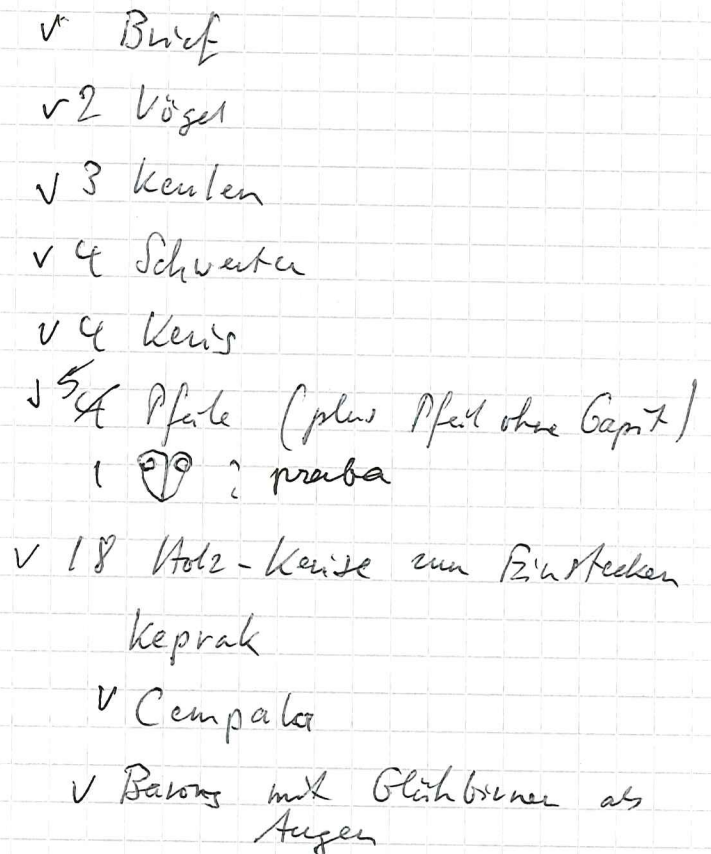 ✓ Brief
✓ 2 Vögel
✓ 3 Keulen
✓ 4 Schwerter
✓ 4 Keris
✓ 5 4 Pfeile (plus Pfeil ohne Gapit)
1 ? praba
✓ 18 Holz-Kerise zum Einstecken
Keprak
✓ Cempala
✓ Barong mit Glühbirnen als
Augen